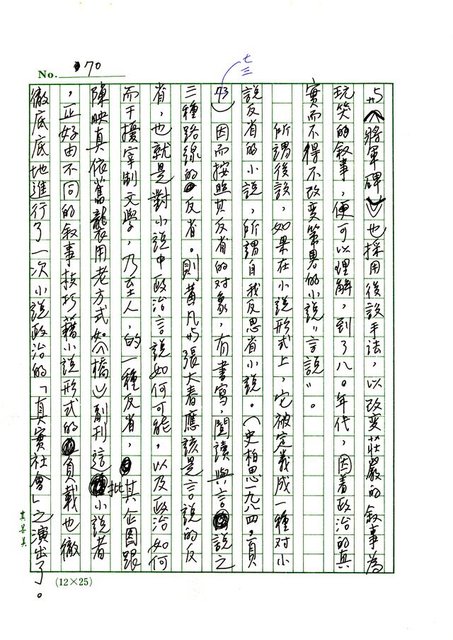 No. 70
的《將軍碑》也採用後設手法，以改變莊嚴的敘事為
玩笑的敘事，便可以理解，到了八○年代，因著政治的真
實而不得不改變策略的小說"言說"。
所謂後設，如果在小說形式上，它被定義成一種對小
說反省的小說，所謂自我反思省小說。（史柏思一九八四：頁
73）因而按照其反省的對象，有書寫、閱讀與言說之
七三
三種路線的反省。則黃凡的張大春應該是言說的反
省，也就是對小說中政治言說如何可能，以及政治如何
而干擾宰制文學，乃至人，的一種反省，其企圖跟
陳映真依舊襲用老方式如《橋》副刊這批小說者
，正好由不同的敘事技巧藉小說形式的負載也徹
徹底底地進行了一次小說政治的「真實社會」之演出了。
(12×25)